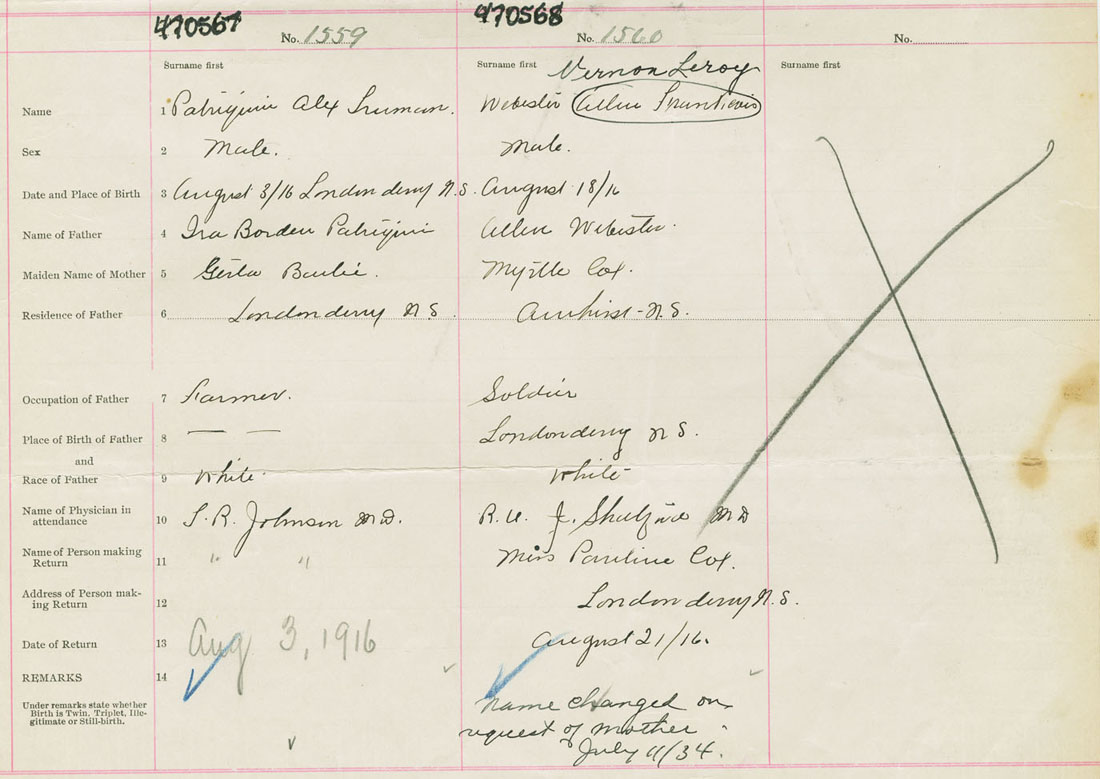 470567 No. 1559 470568 No. 1560 No.
Surname first Surname first Vernon Leroy Surname first
Name 1 Patriquin Alex Truman. Webster Allen
Sex 2 Male. Male.
Date and Place of Birth 3 August 3/16 Londonderry N.S. August 18/16
Name of Father 4 Ira Borden Patriquin Allen Webster.
Maiden Name of Mother 5 Myrtle Cox.
Residence of Father 6 Londonderry N S. Amherst - N.S.
Occupation of Father 7 Farmer. Soldier
Place of Birth of Father 8 — — Londonderry N S.
and
Race of Father 9 White White
Name of Physician in
attendance 10 Johnson M.D. M D
Name of Person making
Return 11 " " Miss Pauline Cox.
Address of Person mak-
ing Return 12 Londonderry N.S.
Date of Return 13 Aug 3, 1916 August 21/16.
REMARKS 14
Under remarks state whether
Birth is Twin, Triplet, Ille-
gitimate or Still-birth.
name changed on
request of mother
July 11/34.